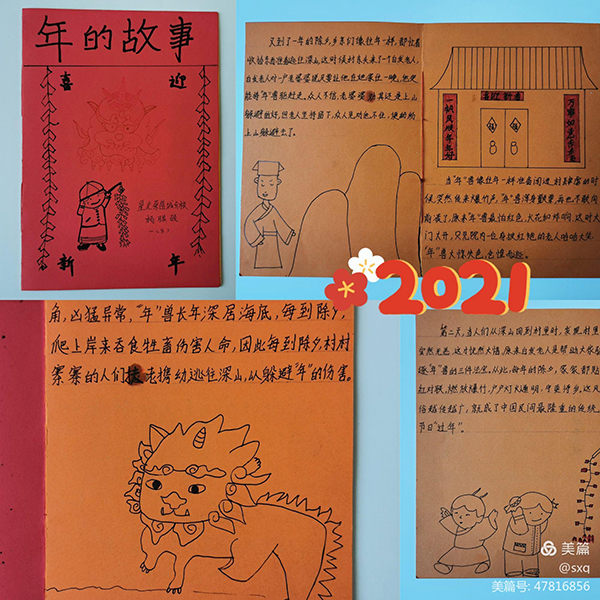 年的故事
喜
迎
新
年
一(4)班
又到了一年的除夕,乡亲们像往年一样,都忙着
收拾东西准备逃往深山,这时候村东头来了一个白发老人,
白发老人对一户老婆婆说只要让他在她家住一晚,他定
能将"年"兽驱赶走。众人不信,老婆婆劝其还是上山
躲避的好,但老人坚持留下,众人见劝他不住,便纷纷
上山躲避去了。
喜迎新春
一帆风顺年年好
万事如意步步高
当"年"兽像往年一样准备闯进村肆虐的时
候,突然传来爆竹声,"年"兽浑身颤栗,再也不敢向
前凑了,原来"年"兽最怕红色,火花和炸响。这时大
门大开,只见院内一位身披红袍的老人哈哈大笑,
"年"兽大惊失色,仓惶而逃。
2021
角,凶猛异常,"年"兽长年深居海底,每到除夕,
爬上岸来吞食牲畜伤害人命,因此每到除夕,村村
寨寨的人们扶老携幼逃往深山,以躲避"年"的伤害。
第二天,当人们从深山回到村里时,发现村里
安然无恙,这才恍然大悟,原来白发老人是帮助大家
"年"兽的三件法宝,从此,每年的除夕,家家都贴
红对联,燃放爆竹,户户灯火通明,守更待岁。这风
俗越传越广,就成了中国民间最隆重的传统
节日"过年"。
美篇
@sxq
美篇号: 47816856